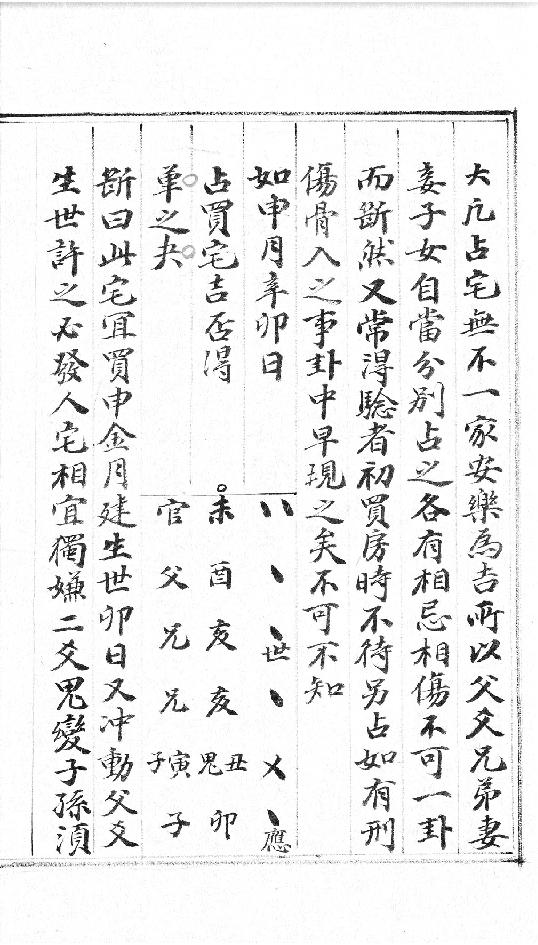 大凡占宅無不一家安樂為吉所以父爻兄弟妻
妾子女自當分別占之各有相忌相傷不可一卦
而斷然又常得驗者初買房時不待另占如有刑
傷骨入之事卦中早現之矣不可不知
如申月辛卯日
占買宅吉否得
革之夬
世
應
未 酉 亥 亥 丑鬼 卯
官 父 兄 兄 寅子 子
斷曰此宅宜買申金月建生世卯日又冲動父爻
生世許之必發人宅相宜獨嫌二爻鬼變子孫須